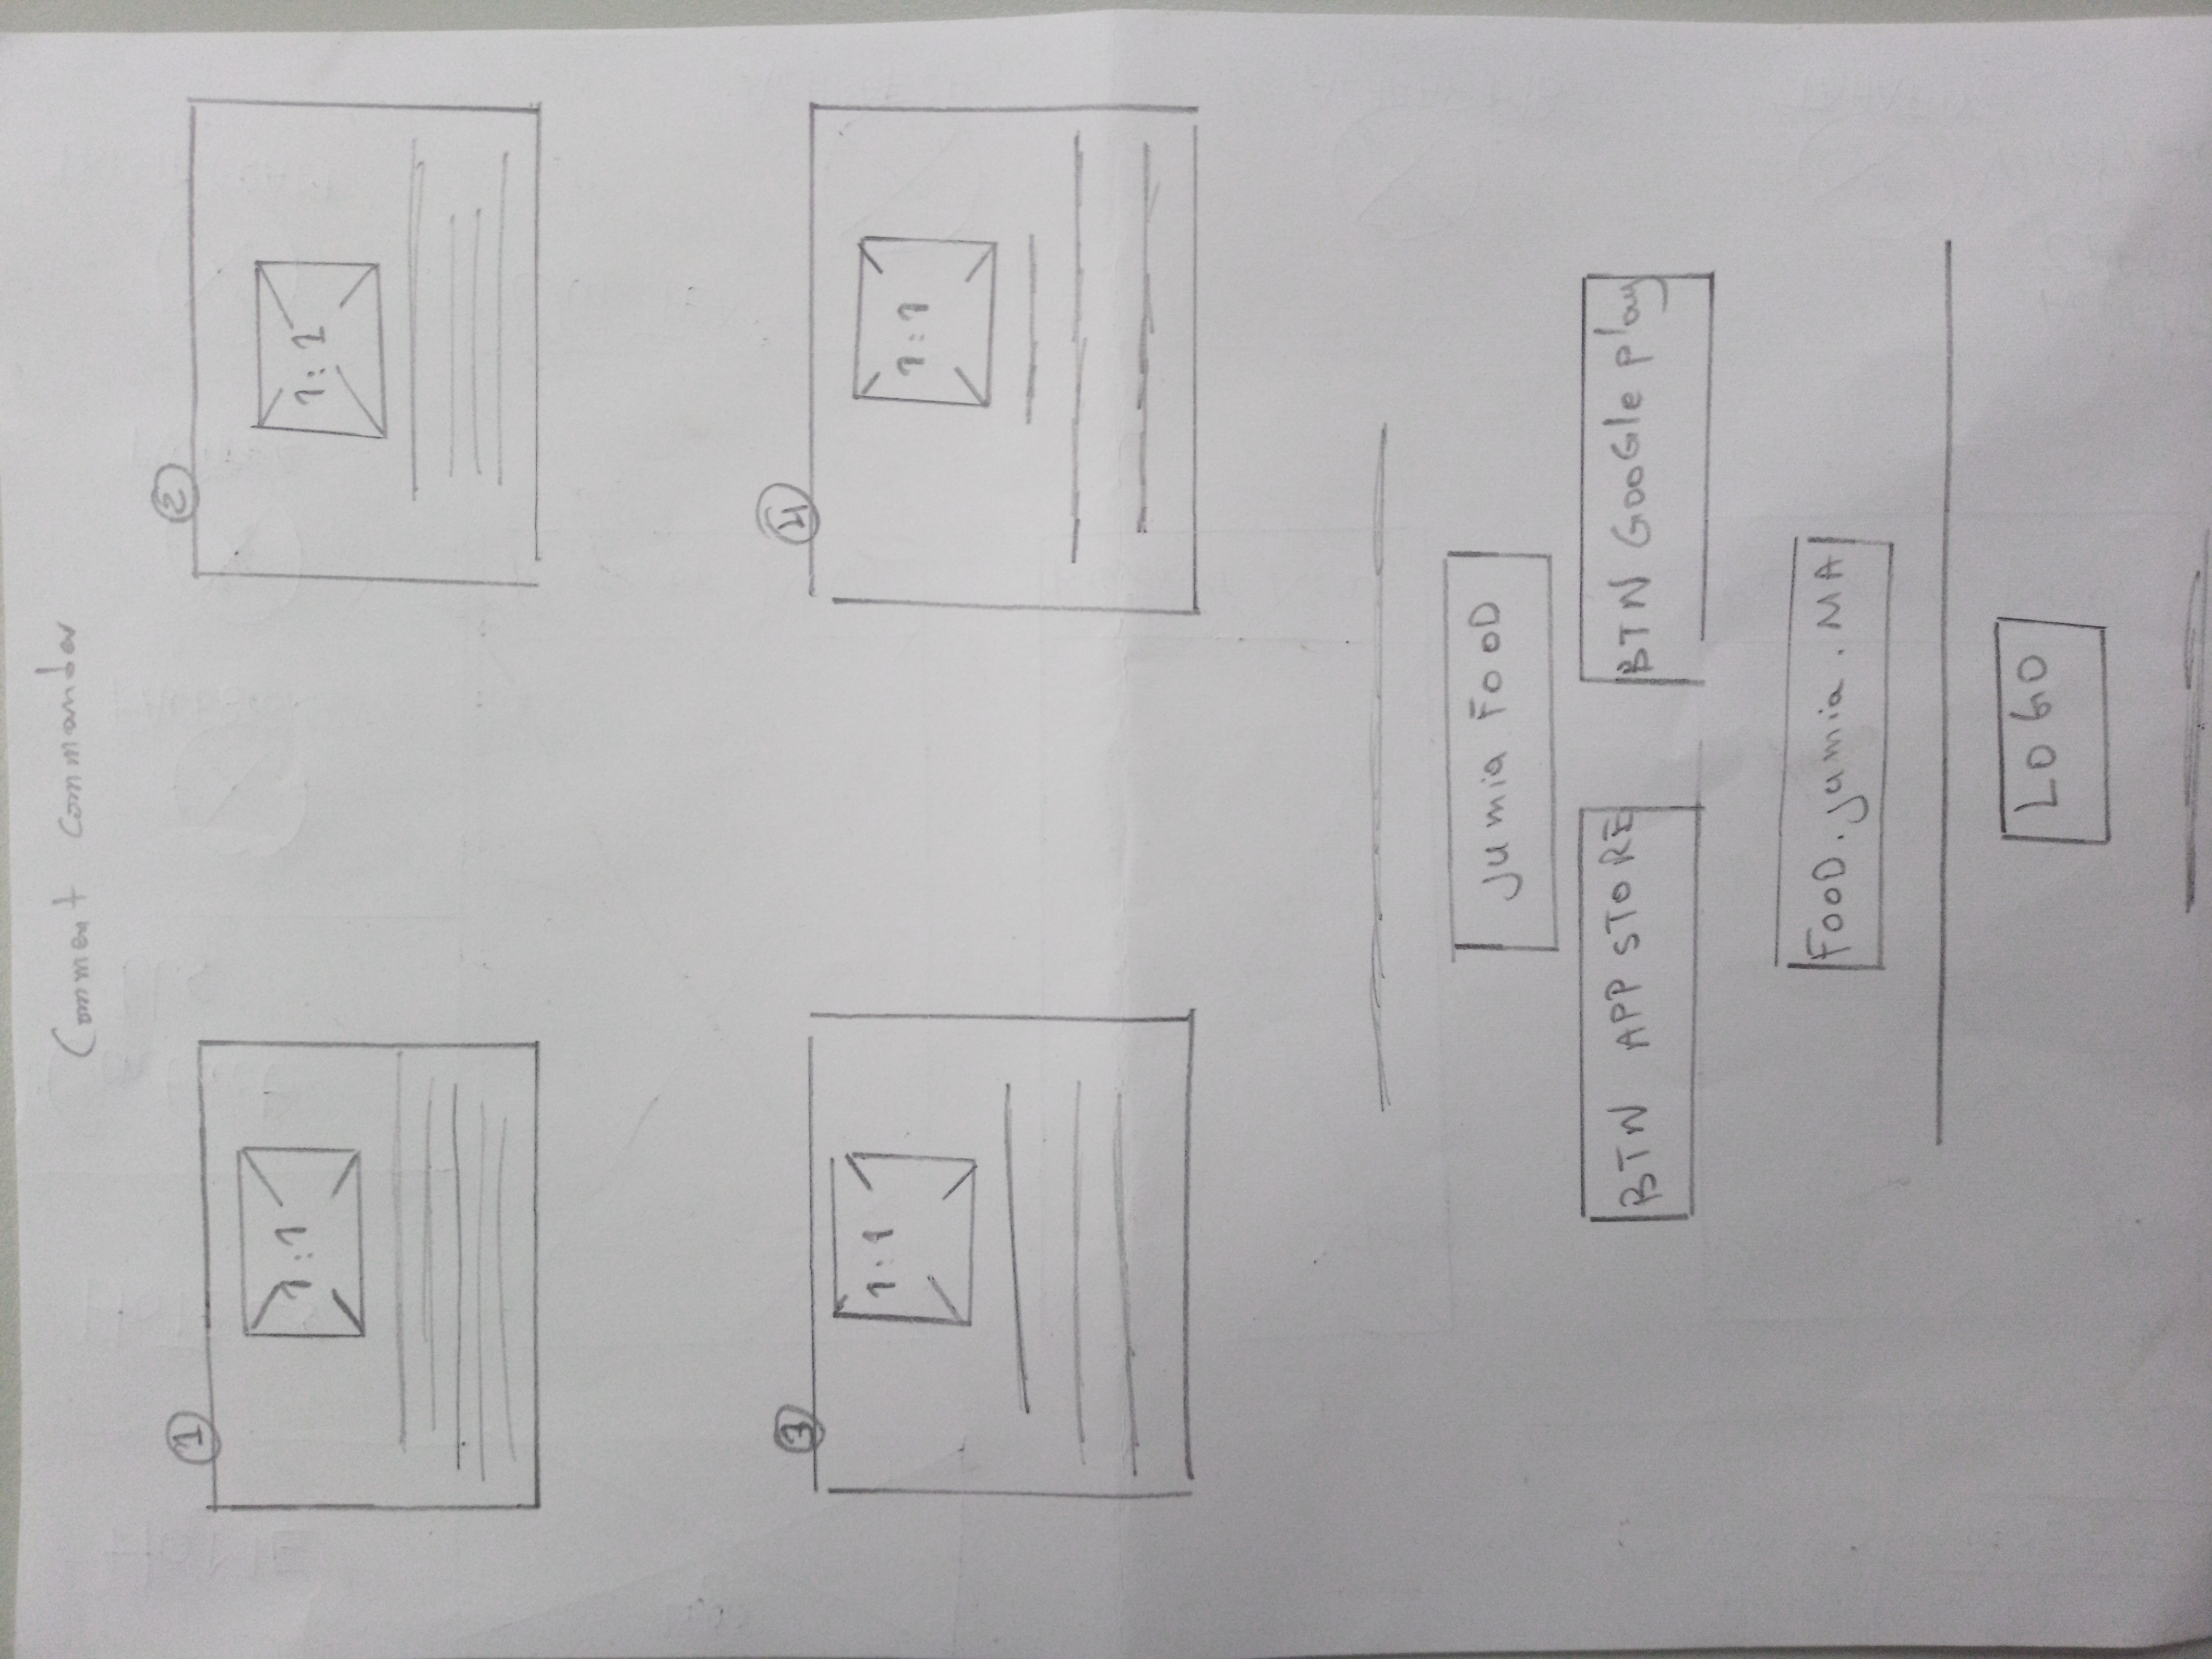 Comment commander
1 2
1:1 1:1
3 4
1:1 1:1
Jumia FooD
BTN APP STORE BTN GooGle play
FooD.jumia.MA
LOGO